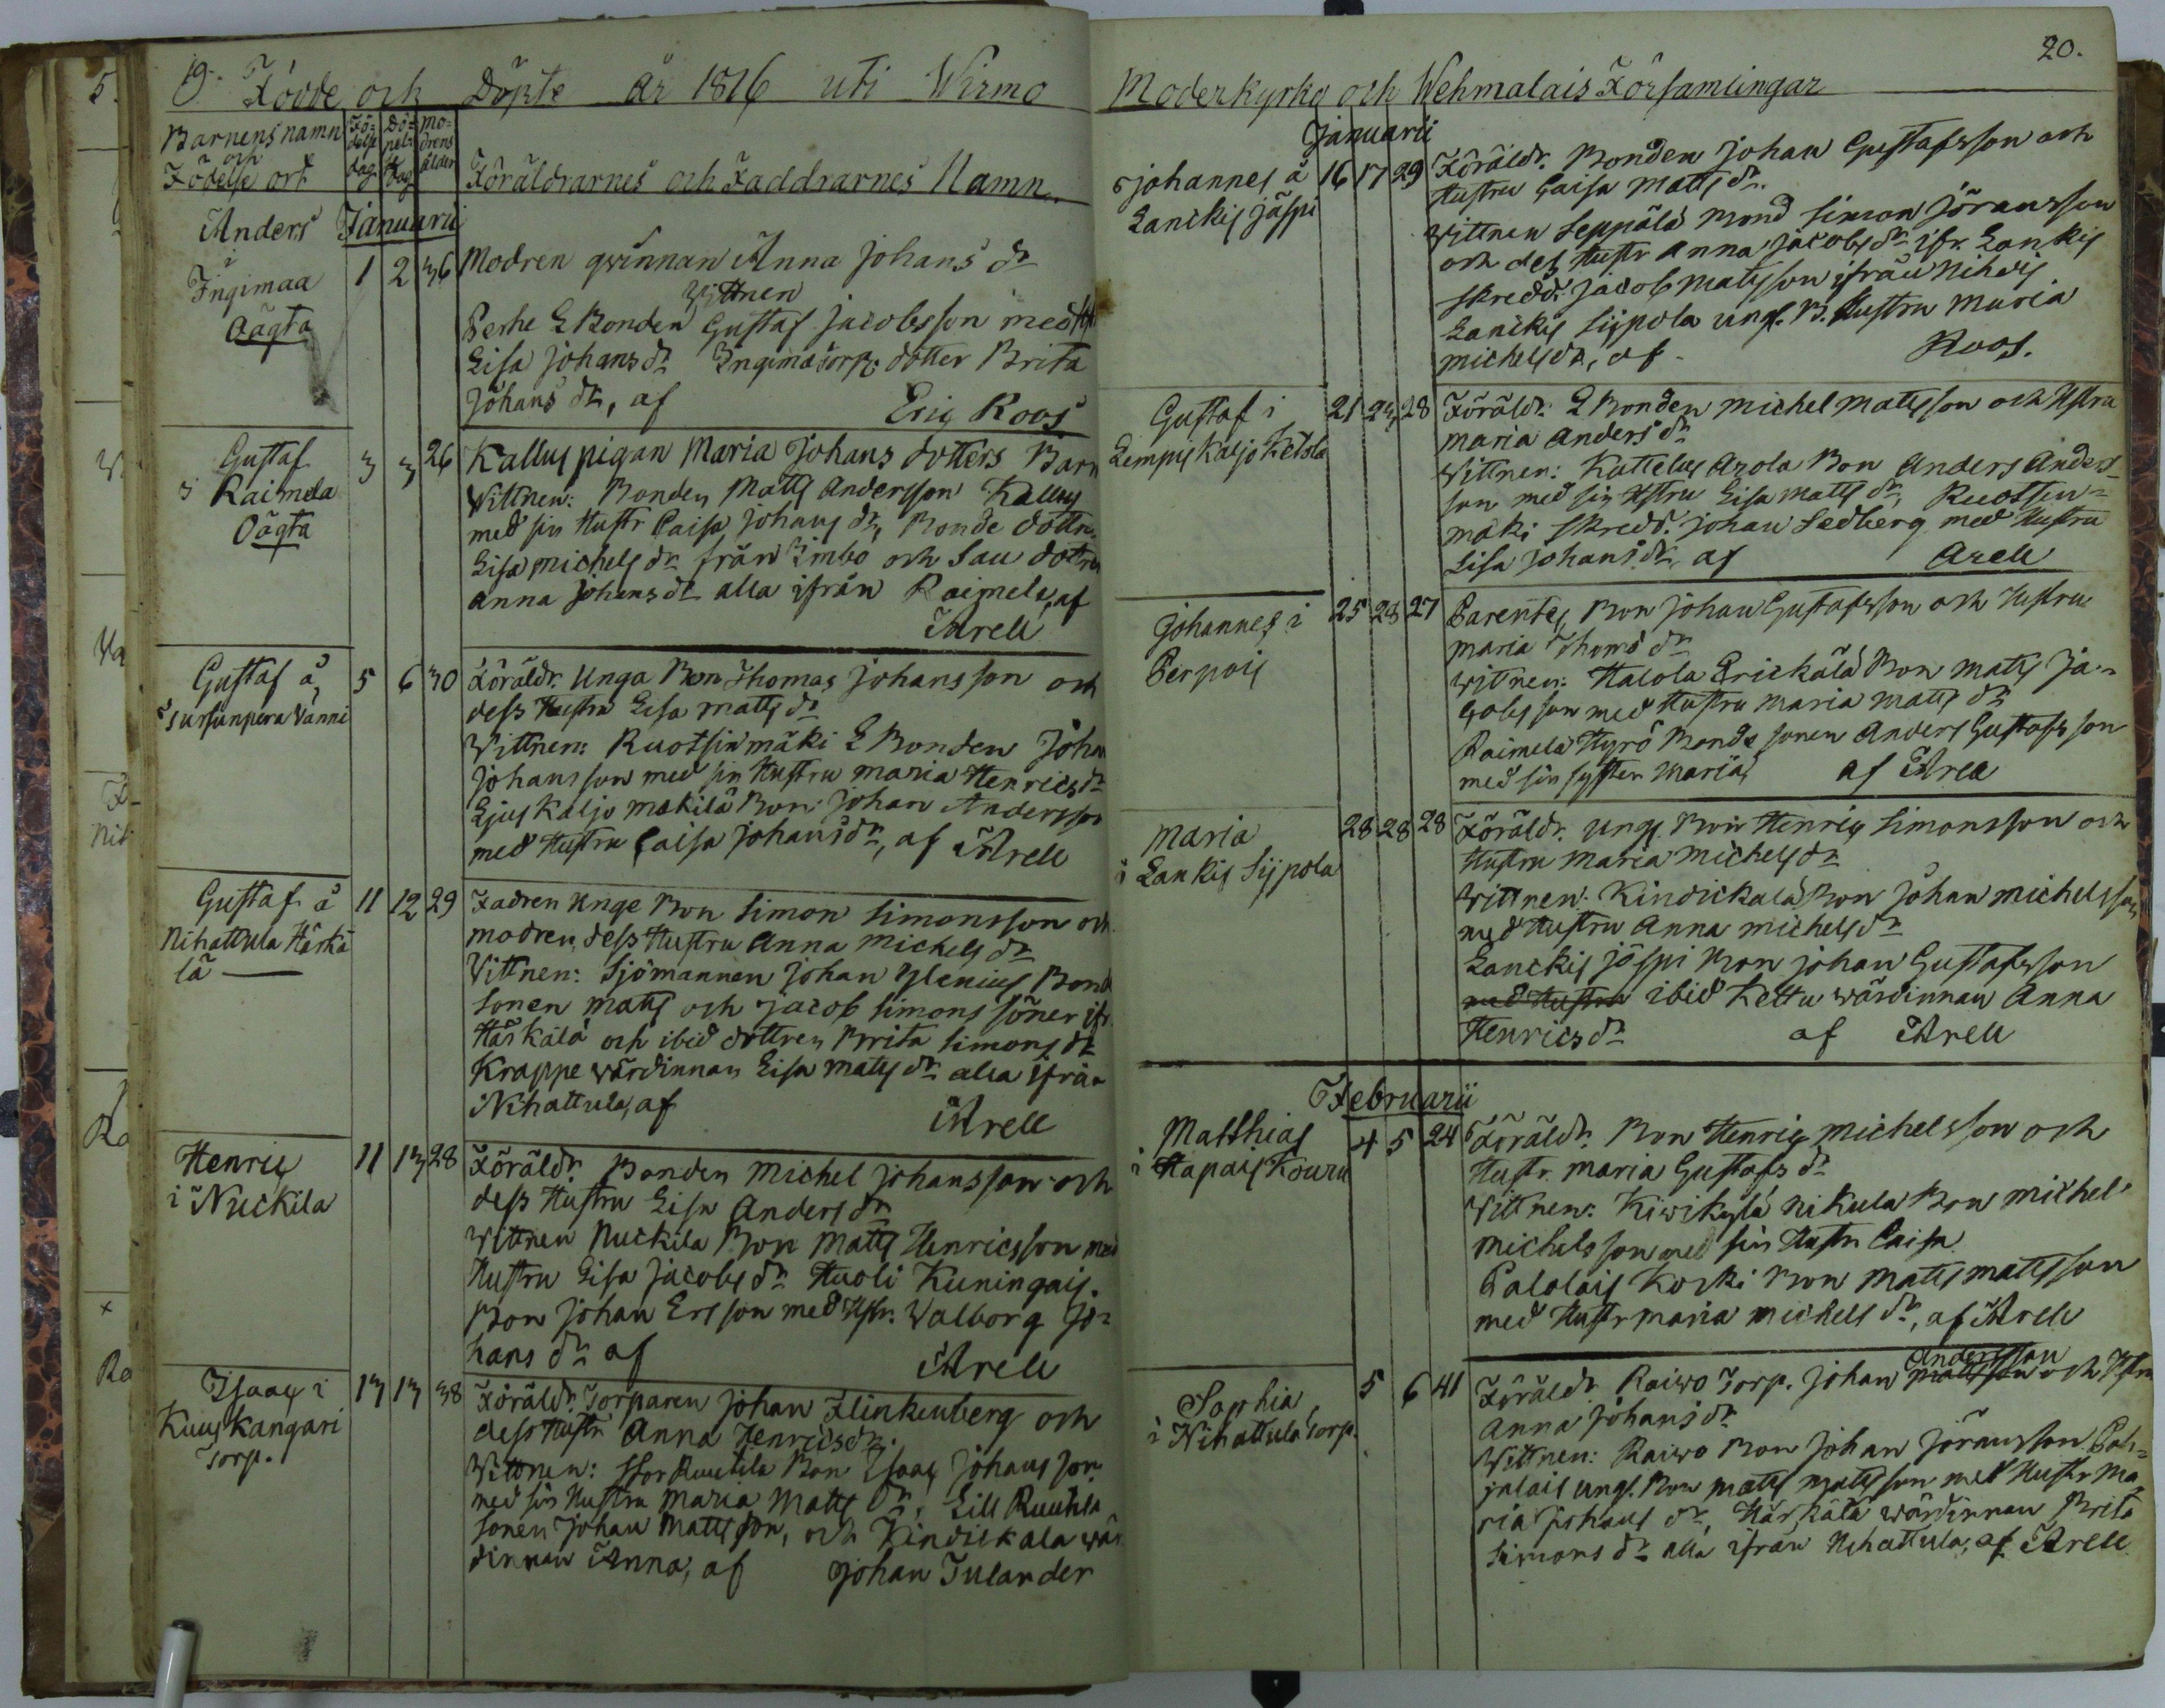 19.
Födde och Döpte år 1816 uti Wirmo
Barnens namn
och
Födelse ort
Fö-
delse
dag.
Dö-
pels
dag
mo-
drens
ålder
Föräldrarnes och Faddrarnes Namn.
Januarii
Anders
i
Ingimaa
Oägta
1 2 36
Modren qwinnan Anna Johans dr
Wittnen
Perhe L Bonden Gustaf Jacobsson med
Lisa Johans dr Ingimatorp: dotter Brita
Johans dr, af Eriq Roos
Gustaf
i Raimela
Oägta
3 3 26
Kallus pigan Maria Johans dotters Barn
Wittnen: Bonden Matts Andersson Kallus
med sin Hustr Caisa Johans dr, Bonde dottr.
Lisa Michels dr från Limbo och Sau dottren
Anna Johans dr alla ifrån Raimela, af
Arell
Gustaf å
Sursunpera Vanni
5 6 30
Föräldr. Unga Bon Thomas Johansson och
dess Hustru Lisa Matts dr
Wittnen: Ruotsinmäki L Bonden Johan
Johansson med sin Hustru Maria Henrics dr
Ljus Kaljo Makilä Bon: Johan Andersson
med Hustru Caisa Johans dr, af Arell
Gustaf å
Nihattula Härkä
lä
11 12 29
Fadren Unge Bon Simon Simonsson och
modren, dess Hustru Anna Michels dr
Vittnen: Sjömannen Johan Ylenius Bond
Sonen Matts och Jacob Simons söner ifr.
Härkälä och ibid dottren Brita Simons dr
Krappe wärdinnan Lisa Mats dr alla ifrån
Nihattula, af Arell
Henriq
i Nuckila
11 13 28
Föräldr. Bonden Michel Johansson och
dess Hustru Lisa Anders dr
Wittnen Nuckila Bon Matts Henricsson med
Hustru Lisa Jacobs dr Huoli Kuningais.
Bon Johan Ersson med Hstr. Walborg Jo-
hans dr af Arell
Isaac i
Kuuskangari
Torp.
13 13 38
Föräldr. Torparen Johan Flinkenberg och
dess Hustr Anna Henrics dr.
Wittnen: Stor Ruutila Bon Isaac Johans son
med sin Hustru Maria Matts Dr, Lill Ruuhla
Sonen Johan Mattsson, och Kindickala wär
dinnan Anna, af Johan Tulander
20.
Moderkyrko och Wehmalais Församlingar
Januarii
Johannes å
Lanckis Jäspi
16 17 29
Föräldr. Bonden Johan Gustafsson och
Hustru Caisa Matts dr.
Wittnen Seppälä Bond Simon Jöransson
och dess Hustr Anna Jacobs dr ifr. Lankis
Skredd. Jacob Matsson ifrån Nihois
Lanckis Sijpola ungl. B. Hustru Maria
Michels dr, af Roos.
Gustaf i
Lempis Kaljo Ketola
21 23 28
Föräldr. L Bonden Michel Mattsson och Hstru
Maria Anders dr
Wittnen: Kattelus Arola Bon Anders Anders-
son med sin Hstru Lisa Matts dr, Ruotsin-
mäki Skredd. Johan Sedberg med Hustru
Lisa Johans dr, af Arell
Johannes i
Perpois
25 28 27
Parentes, Bon Johan Gustafsson och Hustru
Maria Thoms dr
Wittnen: Halola Erickälä Bon Matts Ja-
cobsson med Hustru Maria Matts dr
Raimela Hyrö Bonde sonen Anders Gustafsson
med sin syster Maria, af Arell
Maria
i Lankis Sijpola
28 28 28
Föräldr. Ungl. Bon Henriq Simonsson och
Hustru Maria Michels dr
Wittnen: Kindickala Bon Johan Michelsson
med Hustru Anna Michels dr
Lanckis Jäspi Bon Johan Gustafsson
med Hustru ibid Kettu wärdinnan Anna
Henrics dr af Arell
Februarii
Matthias
i Hapais Kouru
4 5 24
Föräldr. Bon Henriq Michelsson och
Hustr. Maria Gustafs dr
Wittnen: Kiwikylä Nikula Bon Michel
Michelsson med sin Hustr Caisa
Palolais Koski Bon Matts Mattsson
med Hustr Maria Michels dr, af Arell
Sophia,
i Nihattula Torp.
5 6 41
Andersson
Föräldr Raiwo Torp. Johan Mattsson och Hstru
Anna Johans dr
Wittnen: Raiwo Bon Johan Jöransson Pah-
jalais ungl. Bon Matts Mattsson med Hustr Ma
ria Johans dr, Härkälä wärdinnan Brita
Simons dr alla ifrån Nihattula, af Arell